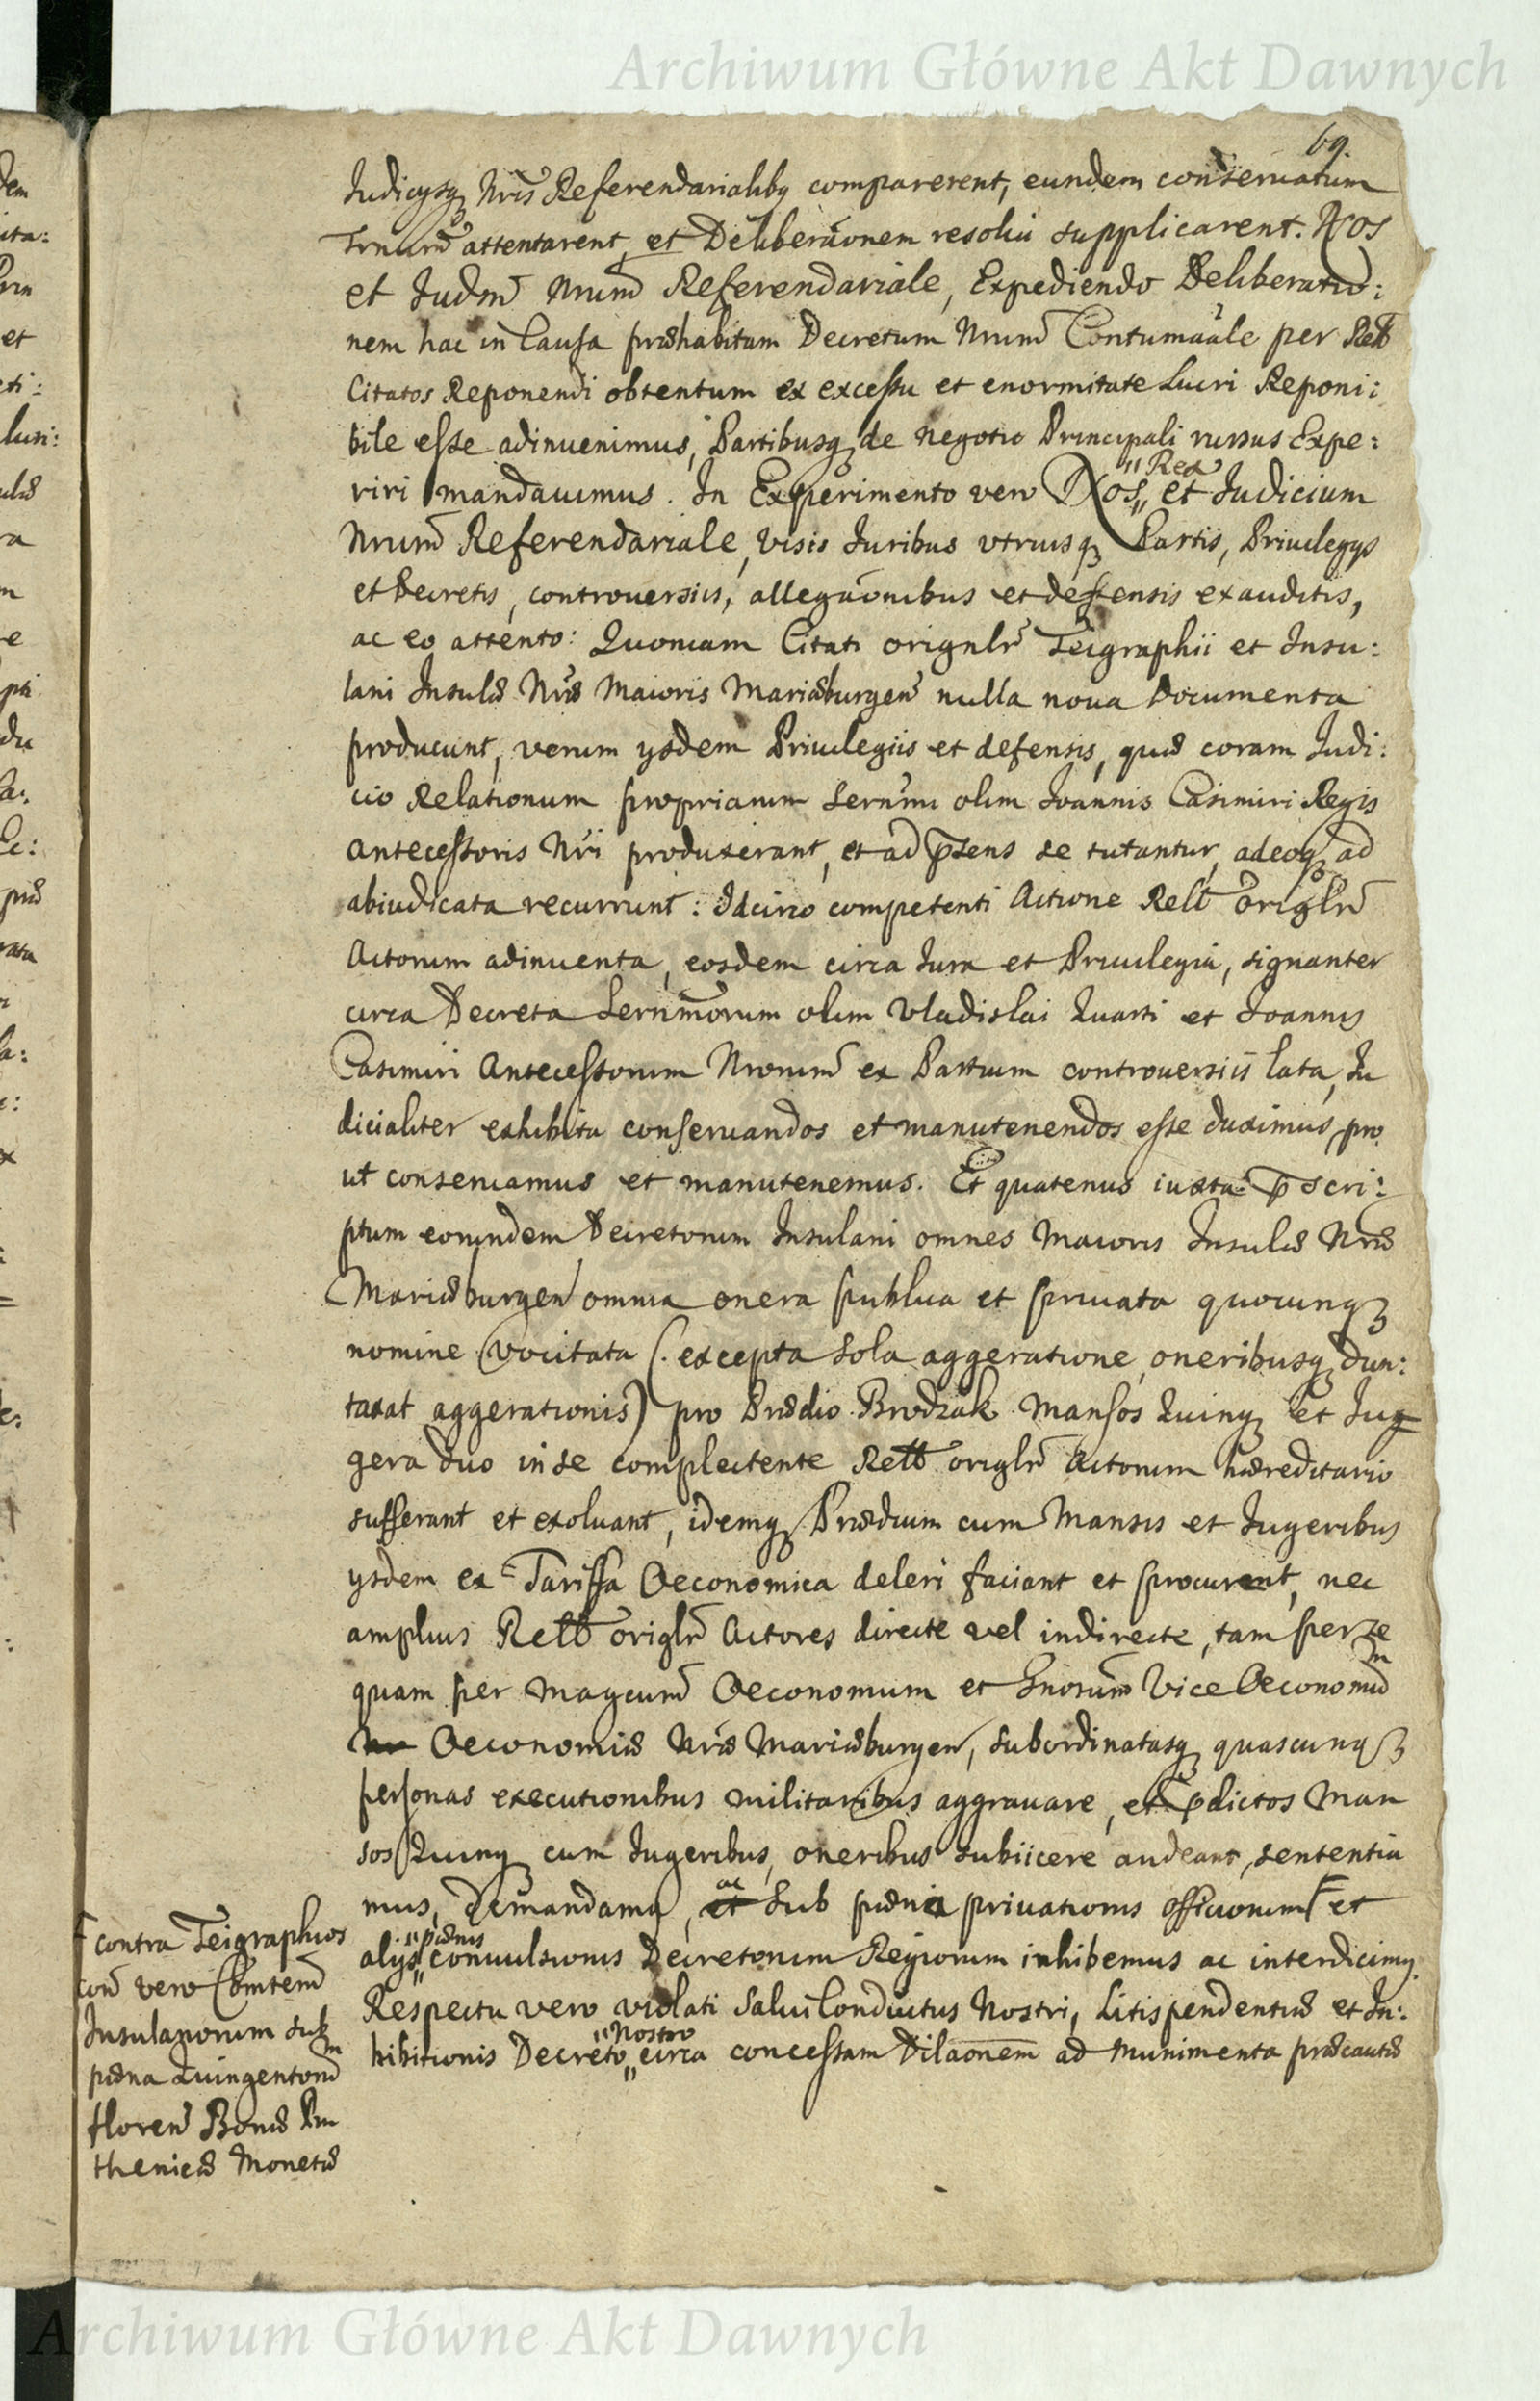 Archiwum Główne Akt Dawnych
69.
Judicysq₃ Nris Referendarialibq comparerent, eundem conservatum
Trnum attentarent, et Deliberaõnem resolvi supplicarent. Nos
et Judm̃ Nrum̃ Referendariale, Expediendo Deliberatio:
nem hac in Causa præhabitam Decretum Nrum̃ Contumatiale per Relt̃
Citatos Reponendi obtentum ex excessu et enormitate Lucri Reponi:
bile esse adinvenimus, Partibusq₃ de negotio Principali rursus Expe:
riri mandavimus. In Experimento vero Nos „ et Judicium
„ Rex
Nrum̃ Referendariale, visis Juribus utriusq₃ Partis, Privilegys
et Decretis, controversiis, allegaõnibus et defensis exauditis,
ac eo attento: Quoniam Citati orignlr̃ Teigraphii et Insu:
lani Insulæ Nræ Maioris Mariæburgen̄ nulla nova Documenta
producunt, verum ysdem Privilegiis et defensis, quæ coram Judi:
cio Relationum propriarum Sernĩmi olim Joannis Casimiri Regis
Antecessoris Nri produxerant, et ad p̄sens se tutantur, adeoq₃ ad
abiudicata recurrunt: Idcirco competenti Actione Relt̃ origlr̃
Actorum adinventa, eosdem circa Jura et Privilegia, signanter
circa Decreta Sernĩmorum olim Vladislai Quarti et Joannis
Casimiri Antecessorum Nrorum̃ ex Partium controversiis lata, Ju
dicialiter exhibita conservandos et manutenendos esse duximus, pro
ut conservamus et manutenemus. Et quatenus iuxta p̄scri:
ptum eorundem Decretorum Insulani omnes Maioris Insulæ Nræ
Mariæburgen̄ omnia onera publica et privata quocunq₃
nomine vocitata (. excepta sola aggeratione, oneribusq₃ dun:
taxat aggerationis) pro Prædio Brodzak Mansos Quinq₃ et Jug
gera duo in se complectente Relt̃ origlr̃ Actorum hæreditario
sufferant et exolvant, idemq₃ Prædium cum Mansis et Jugeribus
ysdem ex Tariffa Oeconomica deleri faciant et procurent, nec
amplius Relt̃ origlr̃ Actores directe vel indirecte, tam per se
quam per Magcum̃ Oeconomum et Gnosum̃ Vice Oeconomũm
Oeconomiæ Nræ Mariæburgen, subordinatasq₃ quascunq₃
personas executionibus militaribus aggravare, et p̄dictos Man
sos Quinq₃ cum Jugeribus, oneribus subiicere audeant, sententia
mus, demandamq, et sub pæna privationis officiorum ꟻ et
ac
alys „ convulsionis Decretorum Regiorum inhibemus ac interdicimq.
„ pænis
Respectu vero violati Salvi Conductus Nostri, Litispendentiæ et In:
hibitionis Decreto „ circa concessam Dilaõnem ad Munimenta præcautæ
„ Nostro
ꟻ contra Teigraphios
con̄ vero Com̃tem̃
Insulanorum sub
pæna Quingentorum̃
floren̄ Bonæ Pru
thenicæ Monetæ
Archiwum Główne Akt Dawnych